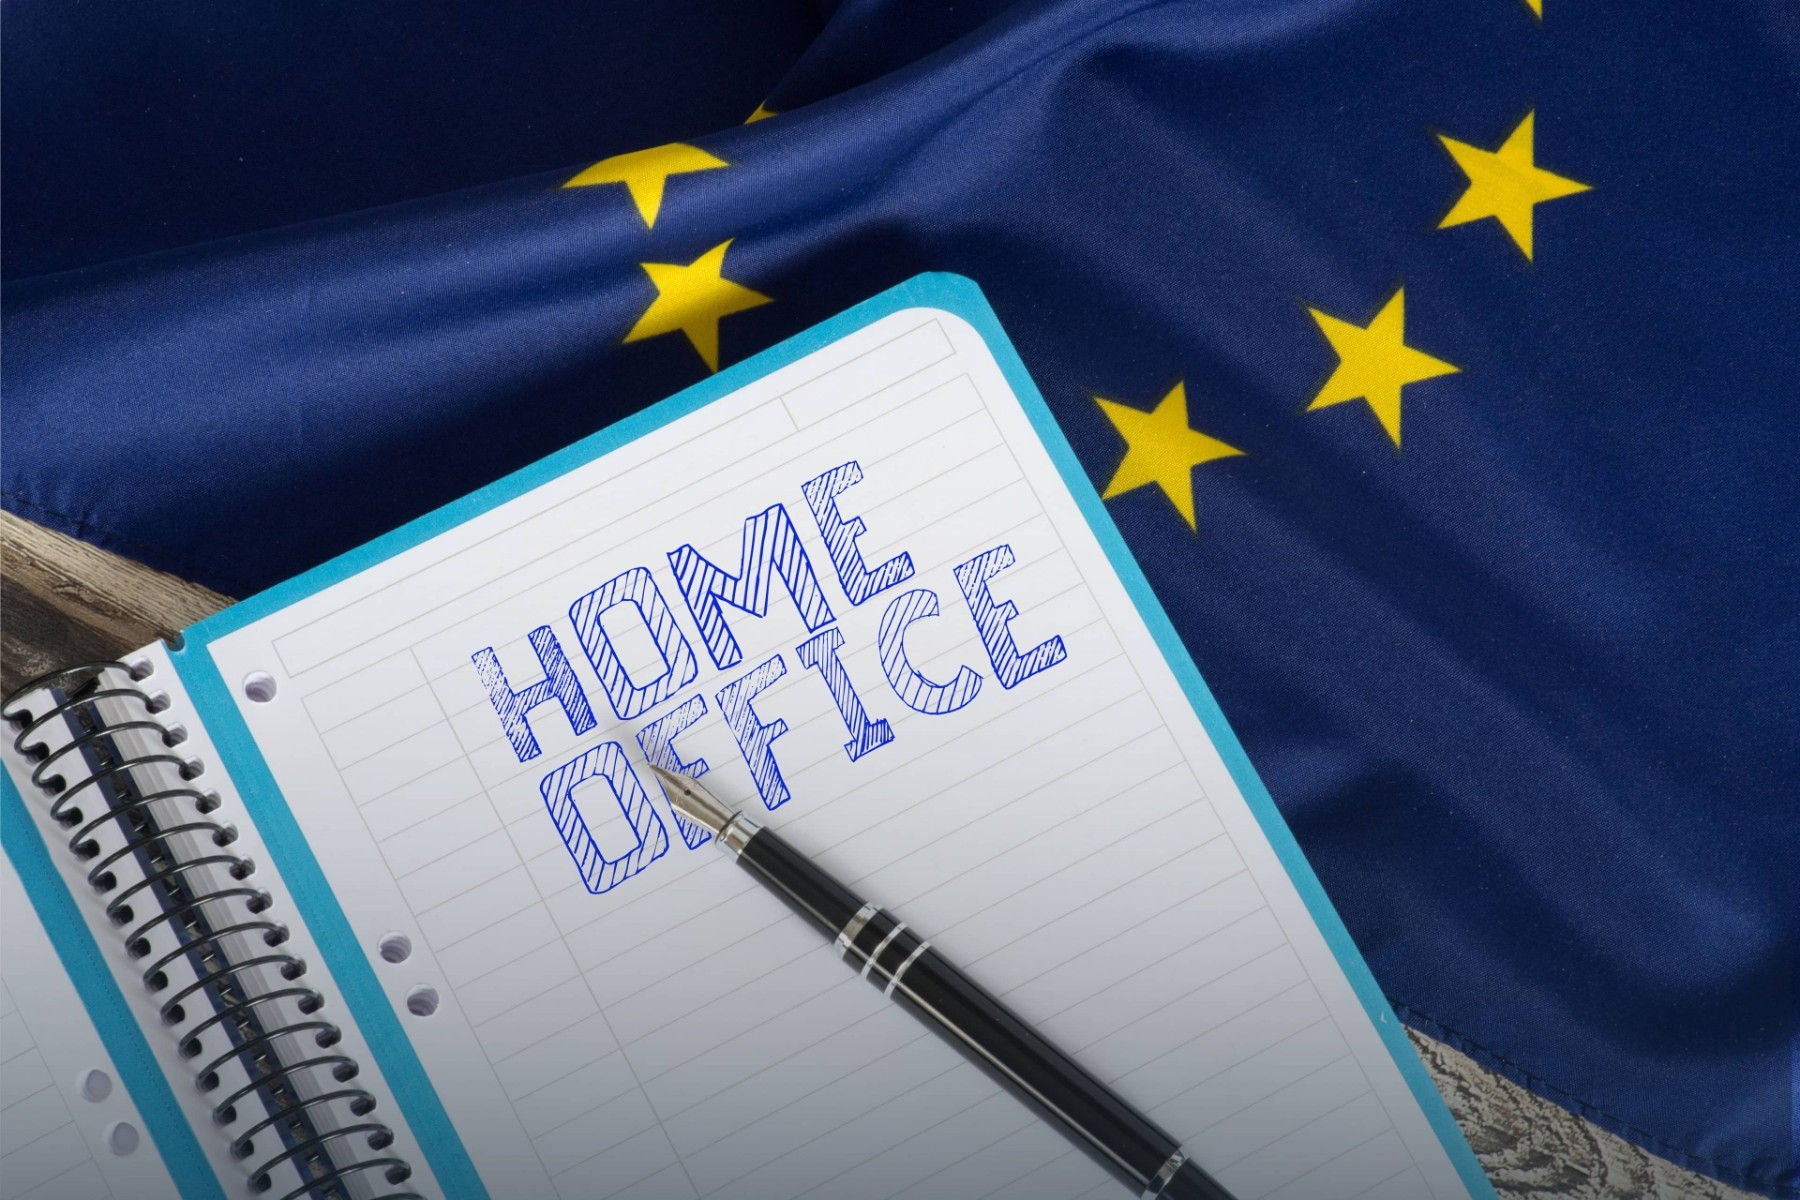 HOME
OFFICE